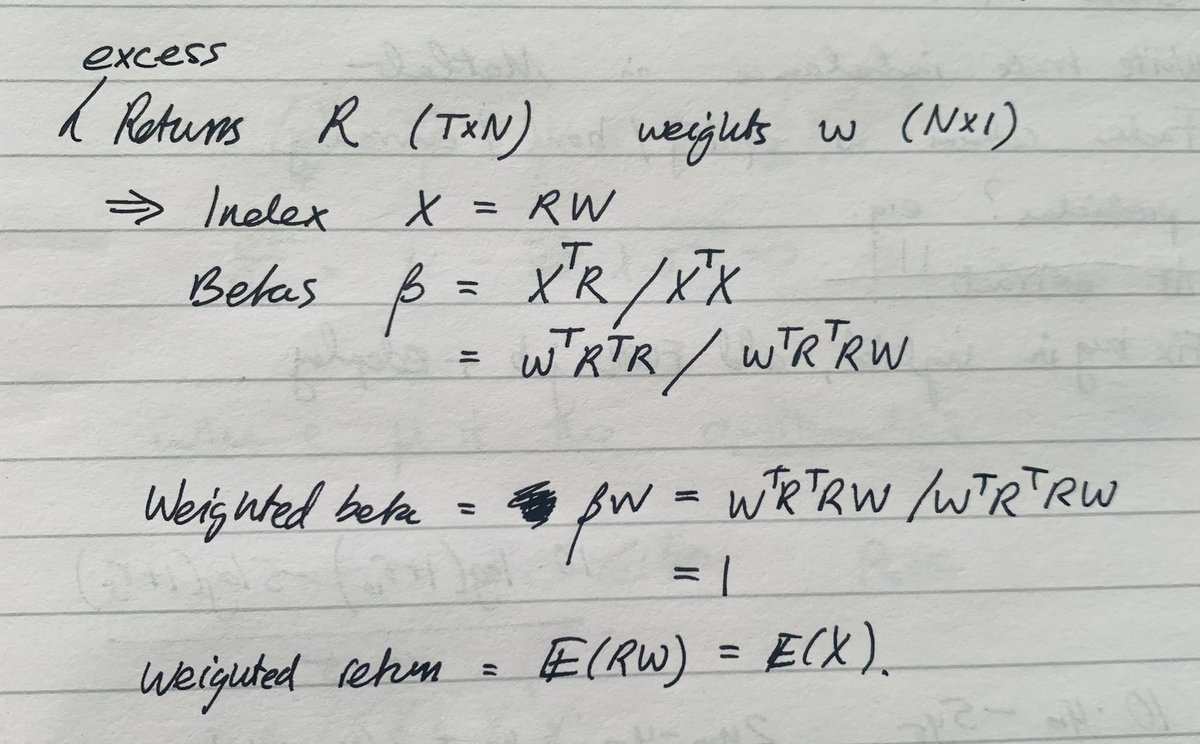 excess
Returns R (T×N) weights w (N×1)
⇒ Index X = RW
Betas β = XᵀR / XᵀX
= WᵀRᵀR / WᵀRᵀRW
Weighted beta = βW = WᵀRᵀRW / WᵀRᵀRW
= 1
Weighted return = E(RW) = E(X).